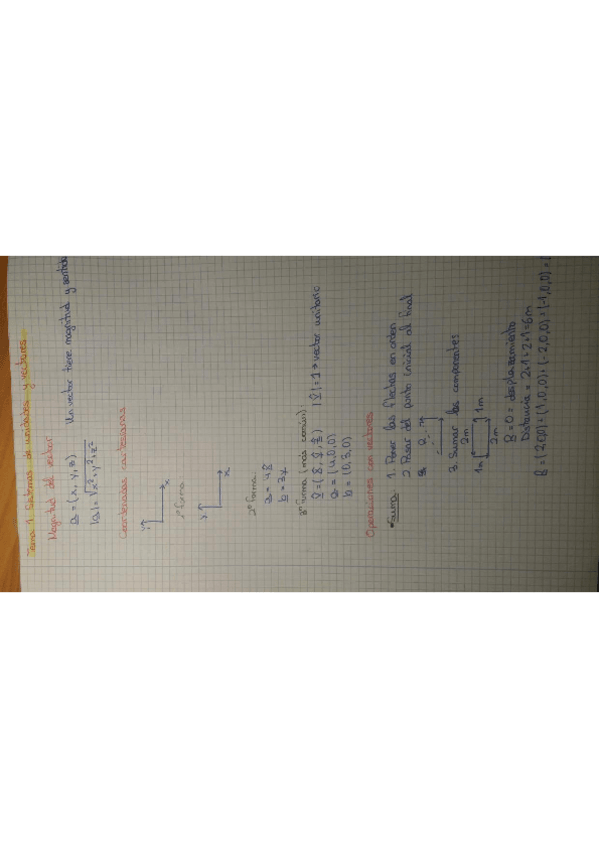 Tema 1. Sistemas de unidades y vectores
Magnitud del vector
a = (x, y, z)    Un vector tiene magnitud y sentido
|a| = √x²+y²+z²
Coordenadas cartesianas
y
x
1ª forma
y
x
2ª forma
a = 4x̂
b = 3y
3ª forma (más común):
|v̂| = 1 → vector unitario
a = (4,0,0)
b = (0,3,0)
Operaciones con vectores
•Suma 1. Poner las flechas en orden
2. Pasar del punto inicial al final
3. Sumar las componentes
2m
1m
1m
2m
R = 0 = desplazamiento
Distancia = 2+1+2+1=6m
R = (2,0,0)+(1,0,0)+(-2,0,0)+(-1,0,0) =